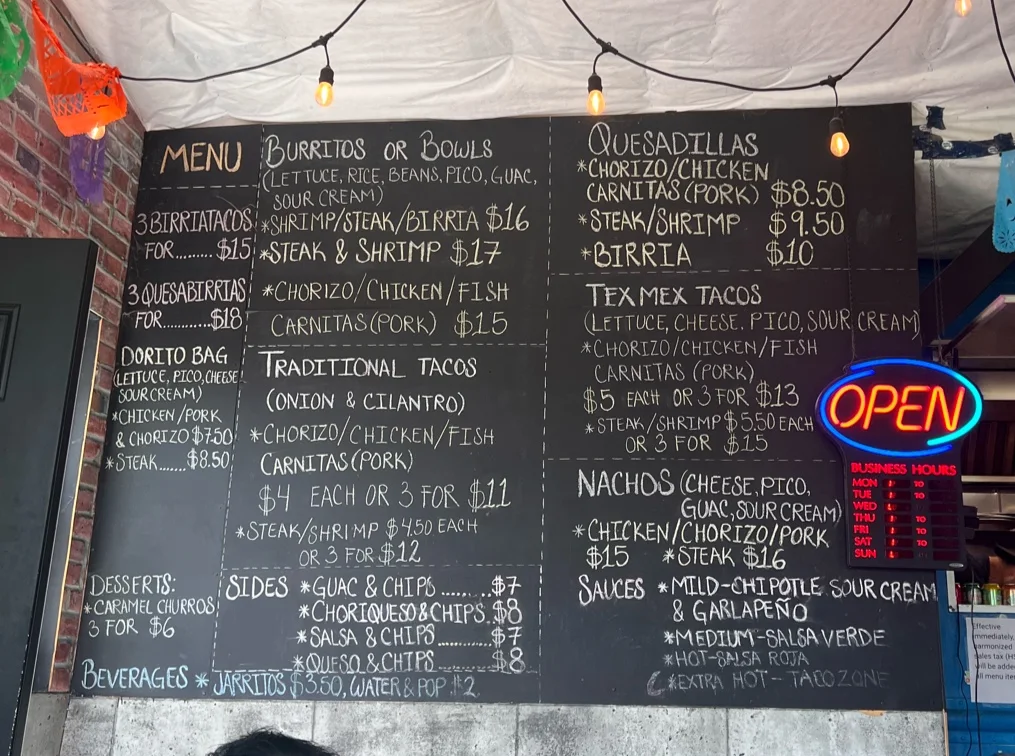 MENU
3 BIRRIA TACOS
FOR.........$15
3 QUESABIRRIAS
FOR............$18
DORITO BAG
(LETTUCE, PICO, CHEESE
SOUR CREAM)
*CHICKEN/PORK
& CHORIZO $7.50
*STEAK......$8.50
DESSERTS:
*CARAMEL CHURROS
3 FOR $6
BURRITOS OR BOWLS
(LETTUCE, RICE, BEANS, PICO, GUAC,
SOUR CREAM)
*SHRIMP/STEAK/BIRRIA $16
*STEAK & SHRIMP $17
*CHORIZO/CHICKEN/FISH
CARNITAS (PORK) $15
TRADITIONAL TACOS
(ONION & CILANTRO)
*CHORIZO/CHICKEN/FISH
CARNITAS (PORK)
$4 EACH OR 3 FOR $11
*STEAK/SHRIMP $4.50 EACH
OR 3 FOR $12
SIDES *GUAC & CHIPS.........$7
*CHORIQUESO & CHIPS.$8
*SALSA & CHIPS...........$7
*QUESO & CHIPS..........$8
BEVERAGES * JARRITOS $3.50, WATER & POP $2
QUESADILLAS
*CHORIZO/CHICKEN
CARNITAS (PORK) $8.50
*STEAK/SHRIMP $9.50
*BIRRIA $10
TEX MEX TACOS
(LETTUCE, CHEESE. PICO, SOUR CREAM)
*CHORIZO/CHICKEN/FISH
CARNITAS (PORK)
$5 EACH OR 3 FOR $13
*STEAK/SHRIMP $5.50 EACH
OR 3 FOR $15
NACHOS (CHEESE, PICO,
GUAC, SOUR CREAM)
*CHICKEN/CHORIZO/PORK
$15 *STEAK $16
SAUCES *MILD-CHIPOTLE SOUR CREAM
& GARLAPEÑO
*MEDIUM-SALSA VERDE
*HOT-SALSA ROJA
*EXTRA HOT-TACO ZONE
OPEN
BUSINESS HOURS
MON TO
TUE TO
WED
THU TO
FRI TO
SAT TO
SUN
Effective
immediately,
harmonized
sales tax (HS
will be added
all menu item